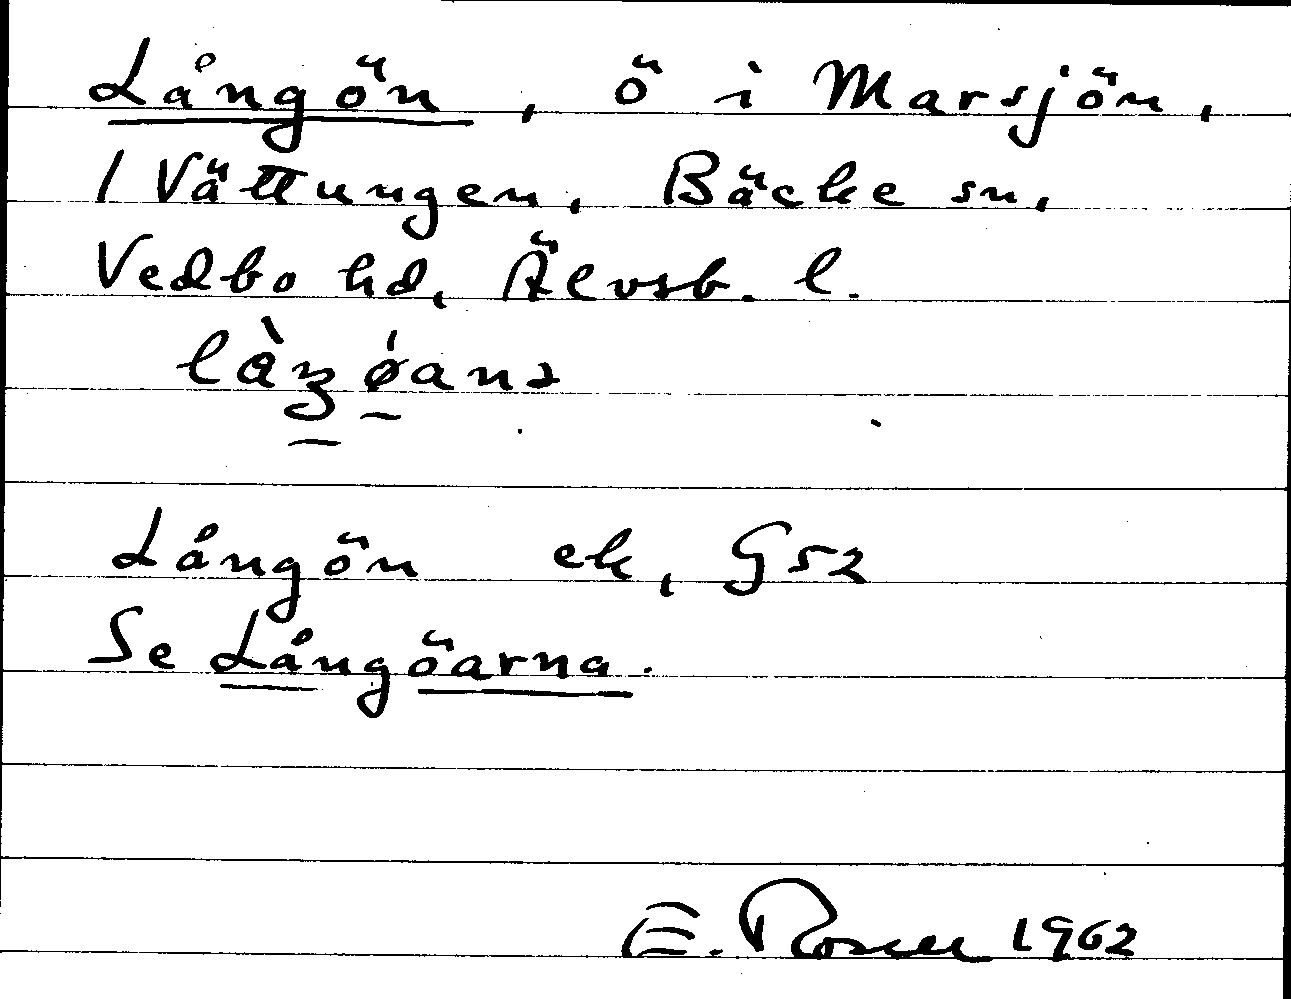 Långön, ö i Marsjön,
1 Vättungen, Bäcke sn,
Vedbo hd, Älvsb. l.
Långön ek, G52
Se Långöarna.
E. Rosen 1962